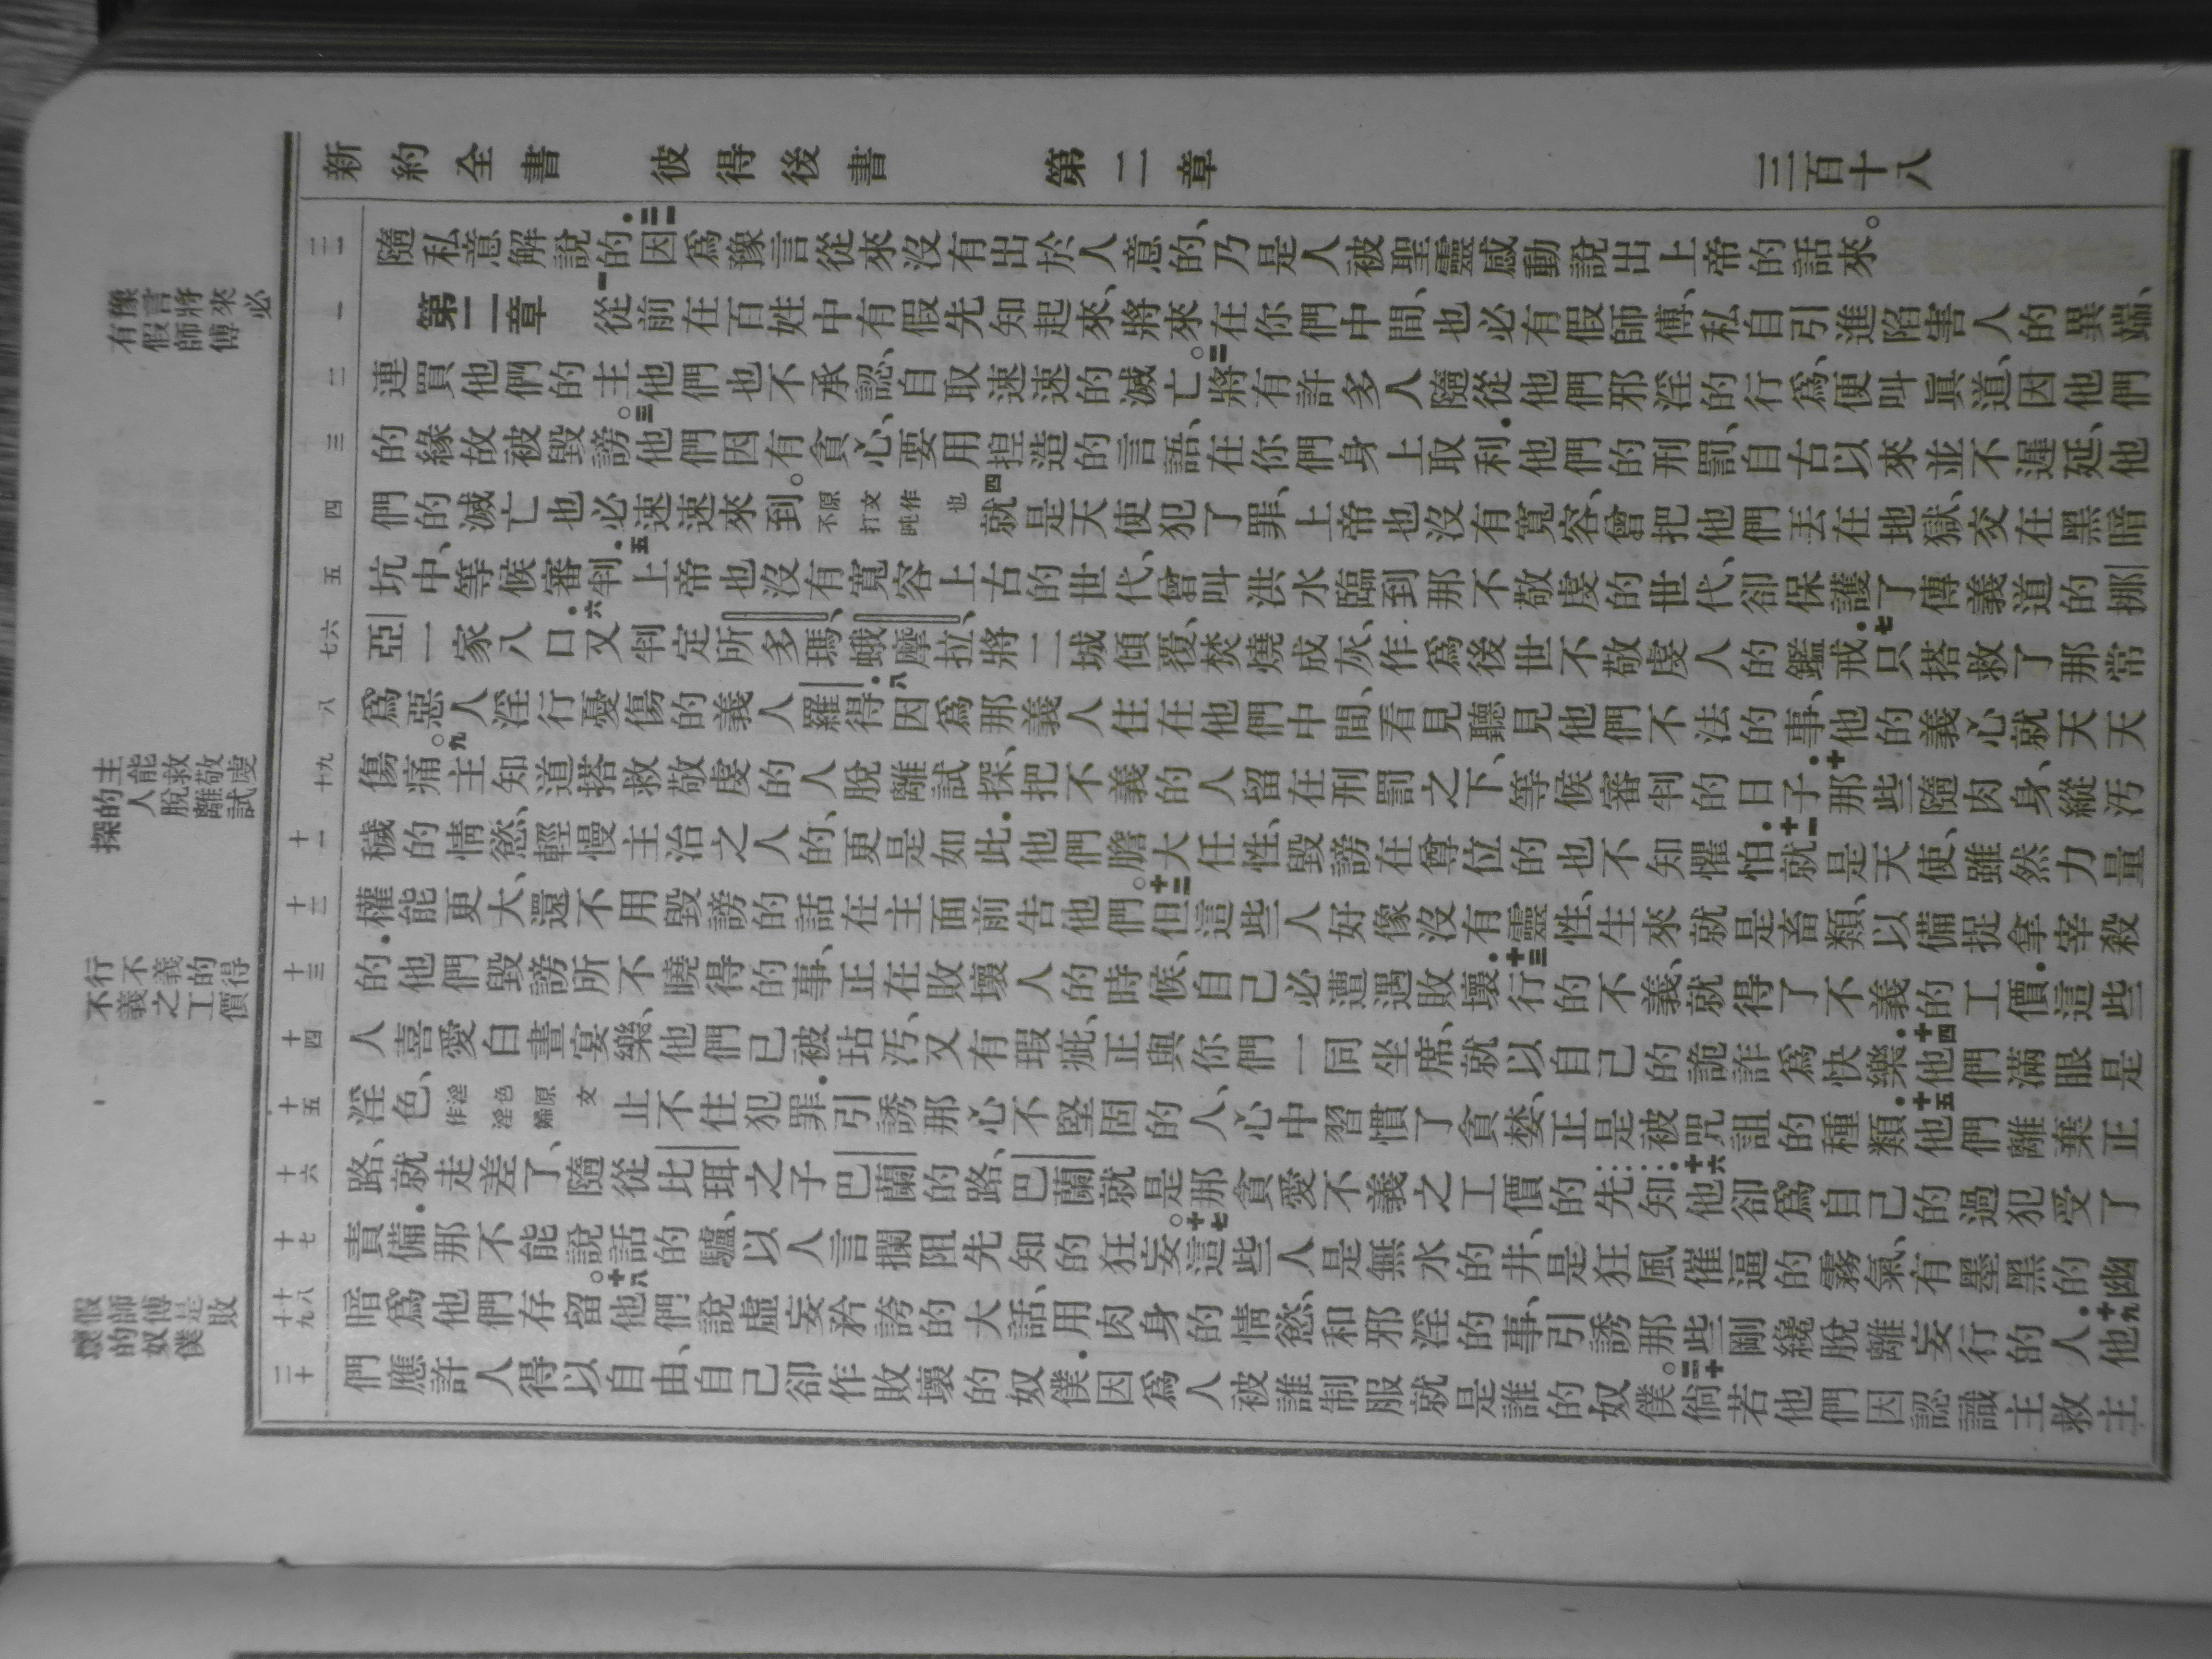 新約全書 彼得後書 第二章 三百十八
豫言將來必有假師傅
主能救敬虔的人脫離試探
行不義的得不義之工價
假師傅是敗壞的奴僕
二一 隨私意解說的.二一因爲豫言從來沒有出於人意的、乃是人被聖靈感動說出上帝的話來。
一 第二章 一從前在百姓中有假先知起來、將來在你們中間、也必有假師傅、私自引進陷害人的異端、
二 連買他們的主他們也不承認、自取速速的滅亡。二將有許多人隨從他們邪淫的行爲、便叫眞道、因他們
三 的緣故被毀謗。三他們因有貪心、要用揑造的言語、在你們身上取利.他們的刑罰、自古以來並不遲延、他
四 們的滅亡也必速速來到。原文作也不打盹四就是天使犯了罪、上帝也沒有寬容、曾把他們丟在地獄、交在黑暗
五 坑中、等候審判.五上帝也沒有寬容上古的世代、曾叫洪水臨到那不敬虔的世代、卻保護了傳義道的挪
六七 亞一家八口.六又判定所多瑪、蛾摩拉、將二城傾覆、焚燒成灰、作爲後世不敬虔人的鑑戒.七只搭救了那常
八 爲惡人淫行憂傷的義人羅得.八因爲那義人住在他們中間、看見聽見他們不法的事、他的義心就天天
九十 傷痛。九主知道搭救敬虔的人脫離試探、把不義的人留在刑罰之下、等候審判的日子.十那些隨肉身、縱汚
十一 穢的情慾、輕慢主治之人的、更是如此.他們膽大任性、毀謗在尊位的也不知懼怕.十一就是天使、雖然力量
十二 權能更大、還不用毀謗的話在主面前告他們。十二但這些人好像沒有靈性、生來就是畜類、以備捉拿宰殺
十三 的.他們毀謗所不曉得的事、正在敗壞人的時候、自己必遭遇敗壞.十三行的不義、就得了不義的工價.這些
十四 人喜愛白晝宴樂、他們已被玷汚、又有瑕疵、正與你們一同坐席、就以自己的詭詐爲快樂.十四他們滿眼是
十五 淫色、淫色原文作淫婦止不住犯罪.引誘那心不堅固的人、心中習慣了貪婪、正是被咒詛的種類.十五他們離棄正
十六 路、就走差了、隨從比珥之子巴蘭的路、巴蘭就是那貪愛不義之工價的先知.十六他卻爲自己的過犯受了
十七 責備.那不能說話的驢、以人言攔阻先知的狂妄。十七這些人是無水的井、是狂風催逼的霧氣、有墨黑的幽
十八十九 暗爲他們存留。十八他們說虛妄矜誇的大話、用肉身的情慾、和邪淫的事、引誘那些剛纔脫離妄行的人.十九他
二十 們應許人得以自由、自己卻作敗壞的奴僕.因爲人被誰制服就是誰的奴僕。二十倘若他們因認識主救主